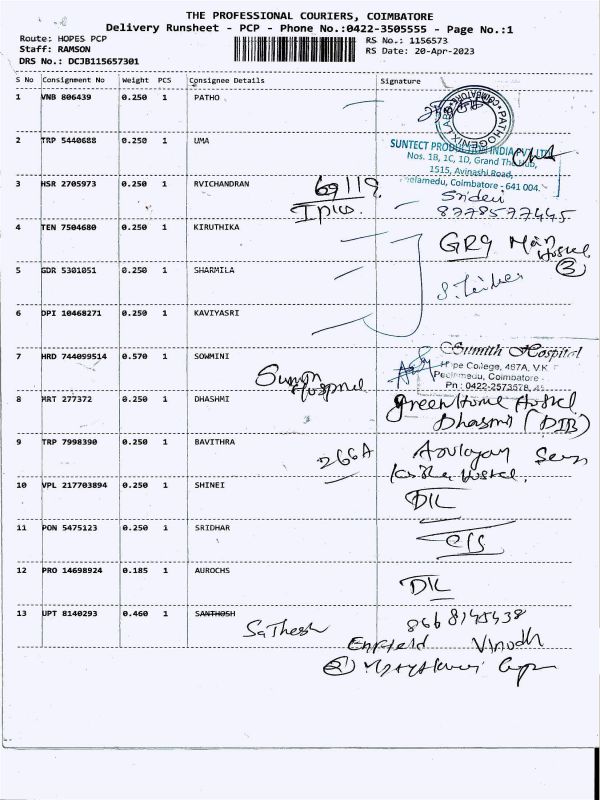 THE PROFESSIONAL COURIERS, COIMBATORE
Delivery Runsheet - PCP - Phone No.:0422-3505555 - Page No.:1
Route: HOPES PCP
RS No.: 1156573
Staff: RAMSON
RS Date: 20-Apr-2023
DRS No.: DCJB115657301
S No Consignment No Weight PCS Consignee Details Signature
1 VNB 806439 0.250 1 PATHO
COIMBATORE PATHOGENIX LABS
2 TRP 5440688 0.250 1 UMA
SUNTECT PRODUCTION INDIA PVT LTD
Nos. 1B, 1C, 1D, Grand The Hub,
1515, Avinashi Road,
Peelamedu, Coimbatore - 641 004.
3 HSR 2705973 0.250 1 RVICHANDRAN
69119
Sridevi
8778577445
4 TEN 7504680 0.250 1 KIRUTHIKA
GRG Main Hostel
3
5 GDR 5301051 0.250 1 SHARMILA
6 DPI 10468271 0.250 1 KAVIYASRI
7 HRD 744099514 0.570 1 SOWMINI
Hospital
Sumith Hospital
Hope College, 467A, V.K
Peelamedu, Coimbatore -
Pn : 0422-2573578, 45
8 MRT 277372 0.250 1 DHASHMI
Green Home Hostel
Dhasmi (DIB)
9 TRP 7998390 0.250 1 BAVITHRA
266A
Hostel
10 VPL 217703894 0.250 1 SHINEI
DIL
11 PON 5475123 0.250 1 SRIDHAR
12 PRO 14698924 0.185 1 AUROCHS
DIL
13 UPT 8140293 0.460 1 SANTHOSH
Sathesh
8668145438
Enfield Vinodh